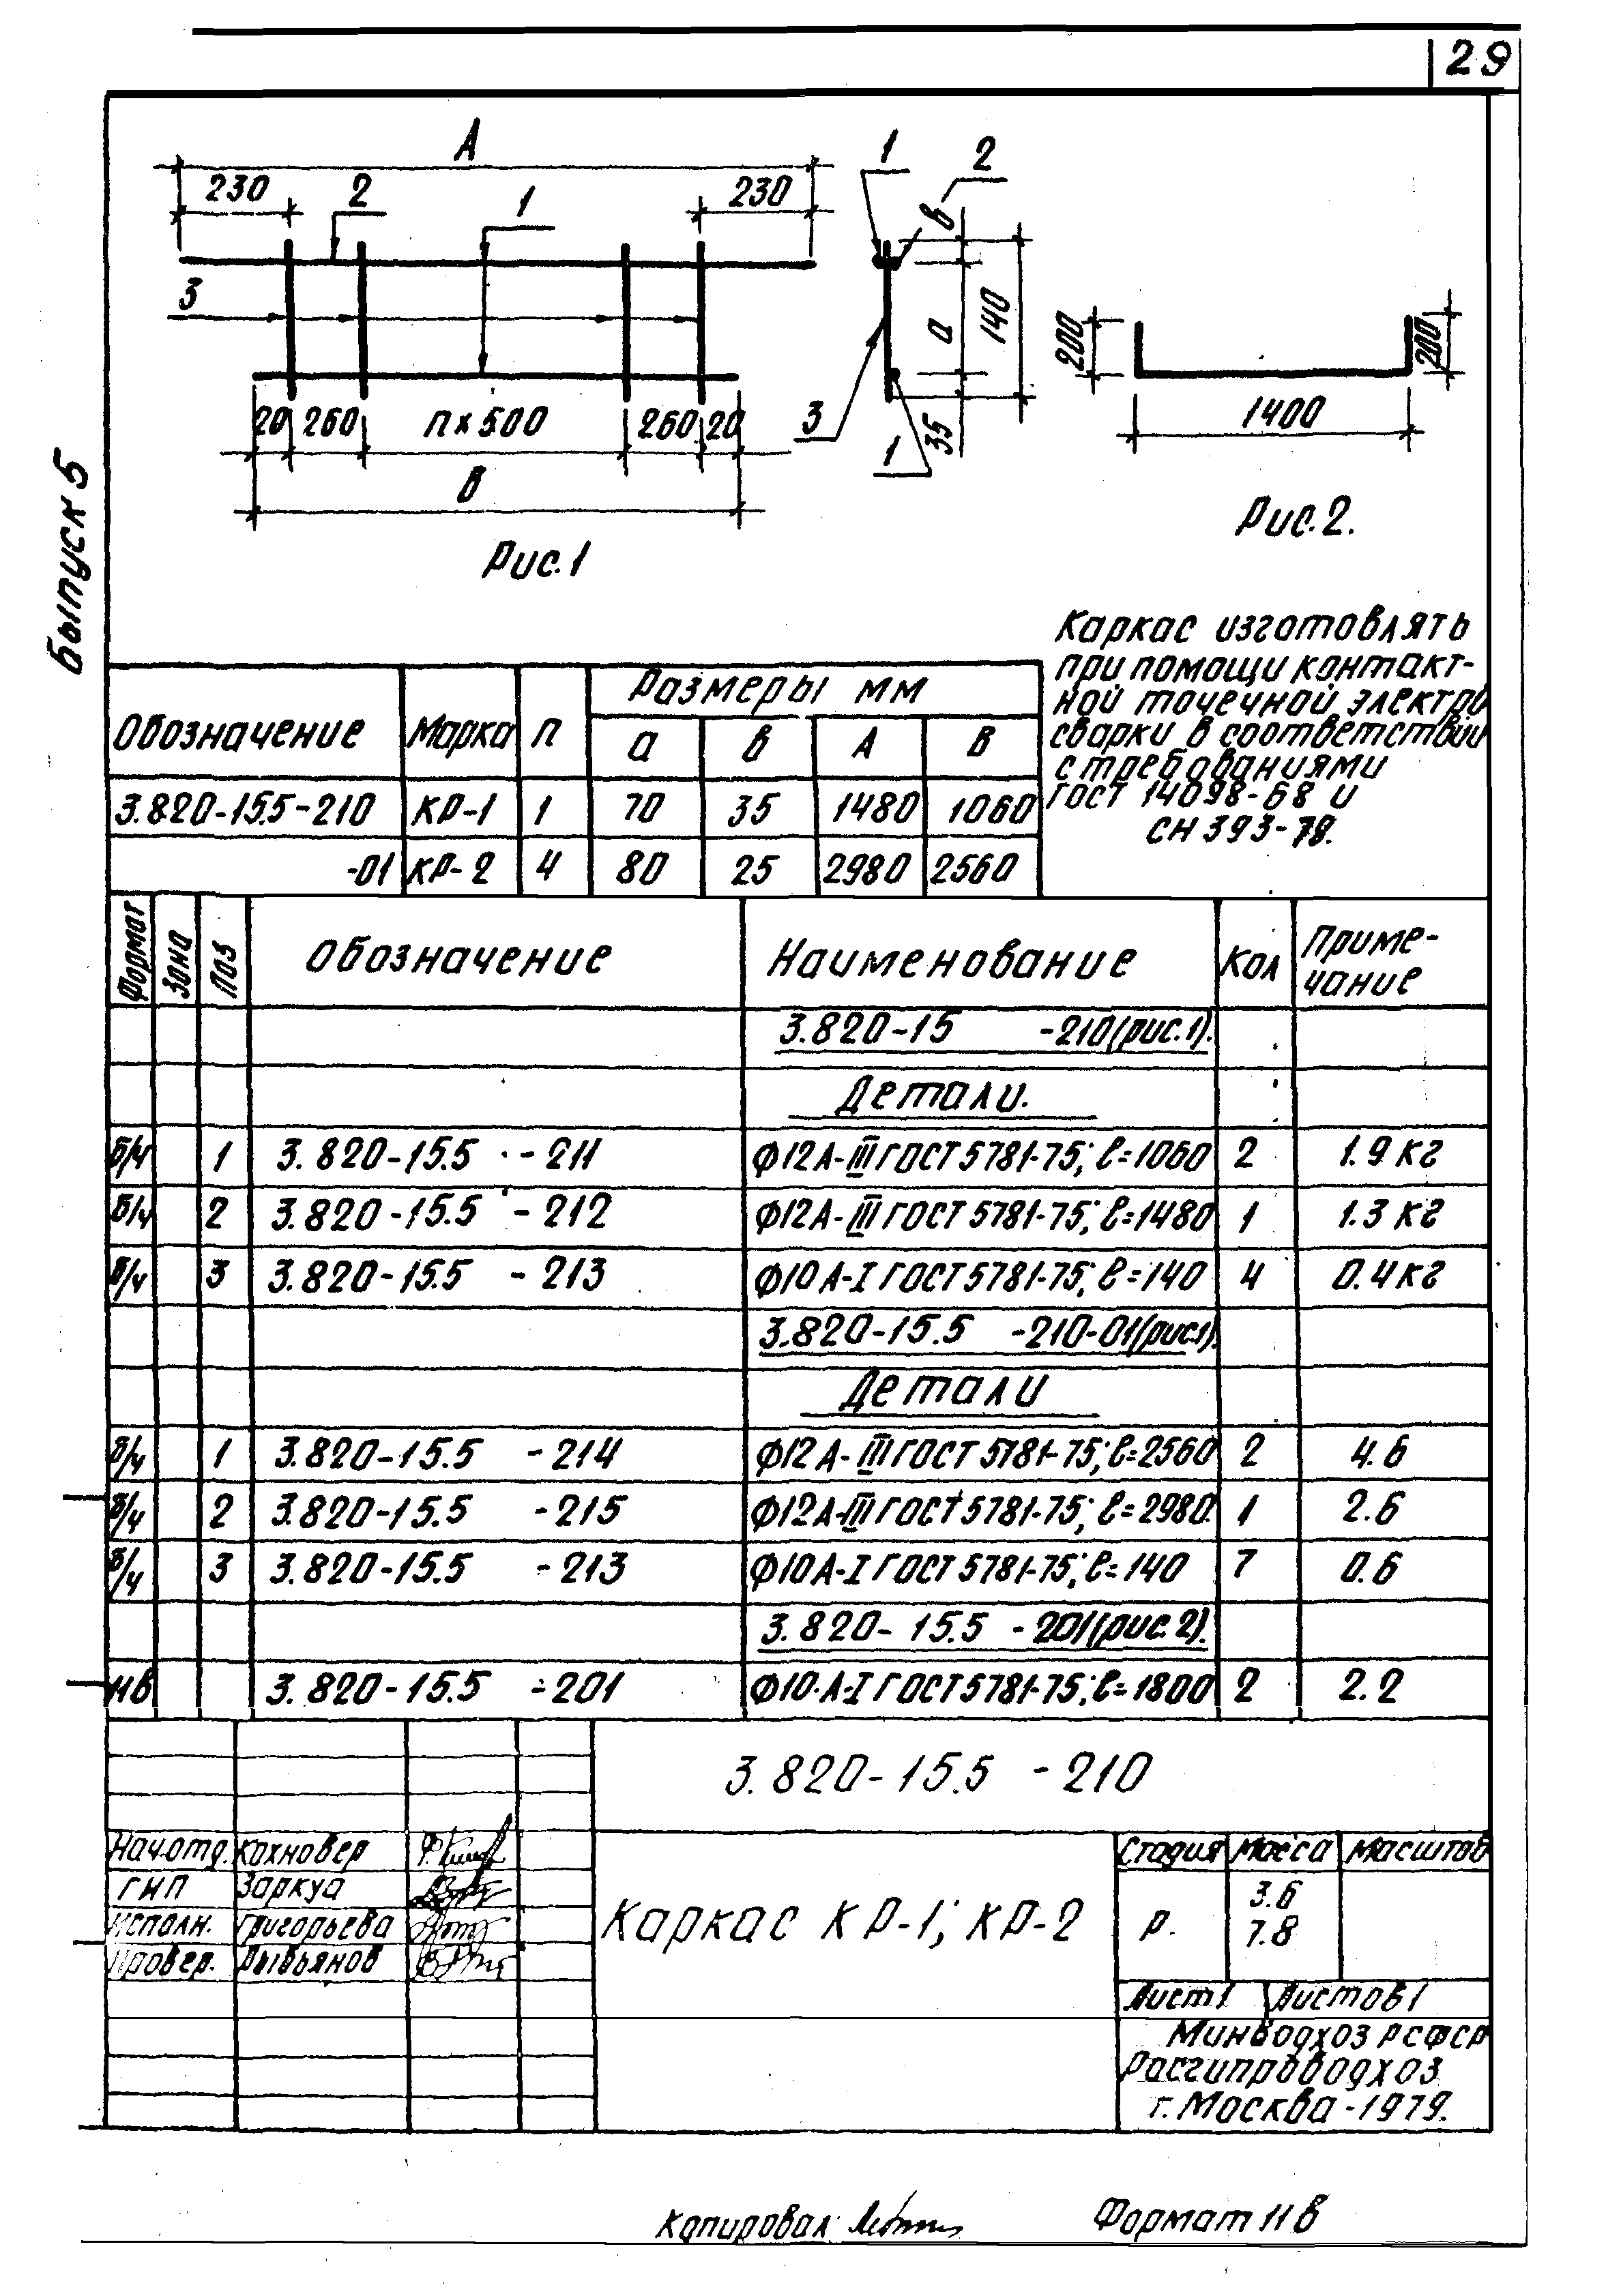 29
Выпуск 5
А
230 2 1 230
3
20 260 п×500 260 20
В
Рис.1
1 2
в
а 140
3 1 35
200 200
1400
Рис.2.
Каркас изготовлять
при помощи контакт-
ной точечной электро
сварки в соответствии
с требованиями
ГОСТ 14098-68 и
СН 393-78.
Обозначение Марка п Размеры мм
а в А В
3.820-15.5-210 КР-1 1 70 35 1480 1060
-01 КР-2 4 80 25 2980 2560
Формат Зона Поз Обозначение Наименование Кол Приме-
чание
3.820-15 -210(рис.1).
Детали.
б/ч 1 3.820-15.5 -211 Ф12А-III ГОСТ 5781-75; ℓ=1060 2 1.9 кг
б/ч 2 3.820-15.5 -212 Ф12А-III ГОСТ 5781-75; ℓ=1480 1 1.3 кг
б/ч 3 3.820-15.5 -213 Ф10А-I ГОСТ 5781-75; ℓ=140 4 0.4 кг
3.820-15.5 -210-01(рис1).
Детали
б/ч 1 3.820-15.5 -214 Ф12А-III ГОСТ 5781-75; ℓ=2560 2 4.6
б/ч 2 3.820-15.5 -215 Ф12А-III ГОСТ 5781-75; ℓ=2980. 1 2.6
б/ч 3 3.820-15.5 -213 Ф10А-I ГОСТ 5781-75; ℓ=140 7 0.6
3.820-15.5 -201(рис.2).
нв 3.820-15.5 -201 Ф10.А-I ГОСТ 5781-75; ℓ=1800 2 2.2
3.820-15.5 -210
Нач.отд. Кохновер
ГИП Заркуа
Исполн. Григорьева
Провер. Рывьянов
Каркас КР-1; КР-2
Стадия Масса Масштаб
р. 3.6
7.8
Лист 1 Листов 1
Минводхоз РСФСР
Росгипроводхоз
г. Москва-1979.
Копировал Формат 11В